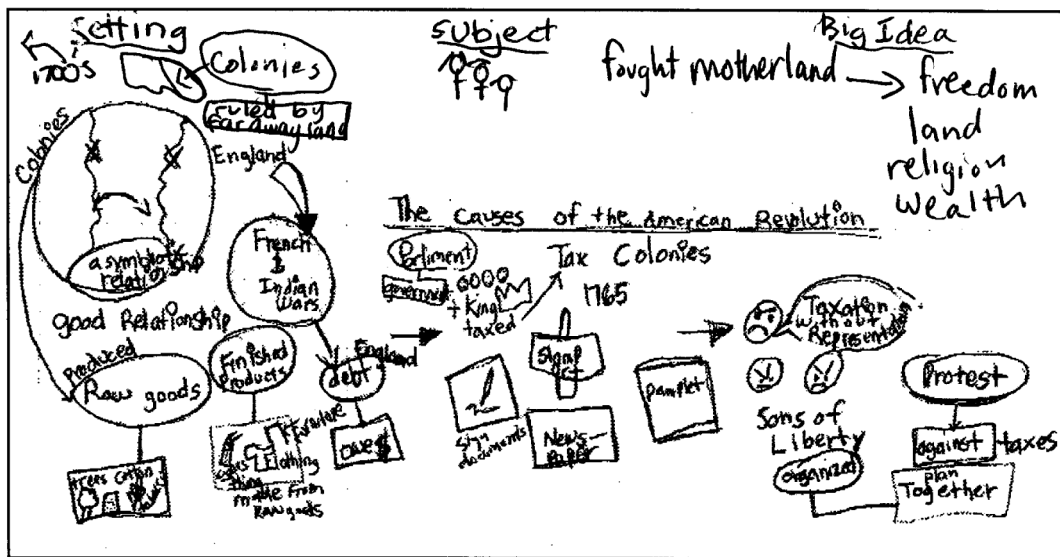 Setting
1700s
Colonies
ruled by
far away land
England
Colonies
a symbiotic
relationship
good Relationship
Produced
Raw goods
trees cotton
French
&
Indian
Wars
Finished
Products
Furniture
clothing
thing
made from
Raw goods
England
debt
owed
Subject
Big Idea
fought motherland
freedom
land
religion
wealth
The Causes of the American Revolution
Parliment
government
+ King
taxed
Tax Colonies
1765
Stamp
Act
sign
documents
News-
Paper
Pamplet
Taxation
without
Representation
Sons of
Liberty
organized
Protest
against taxes
plan
Together